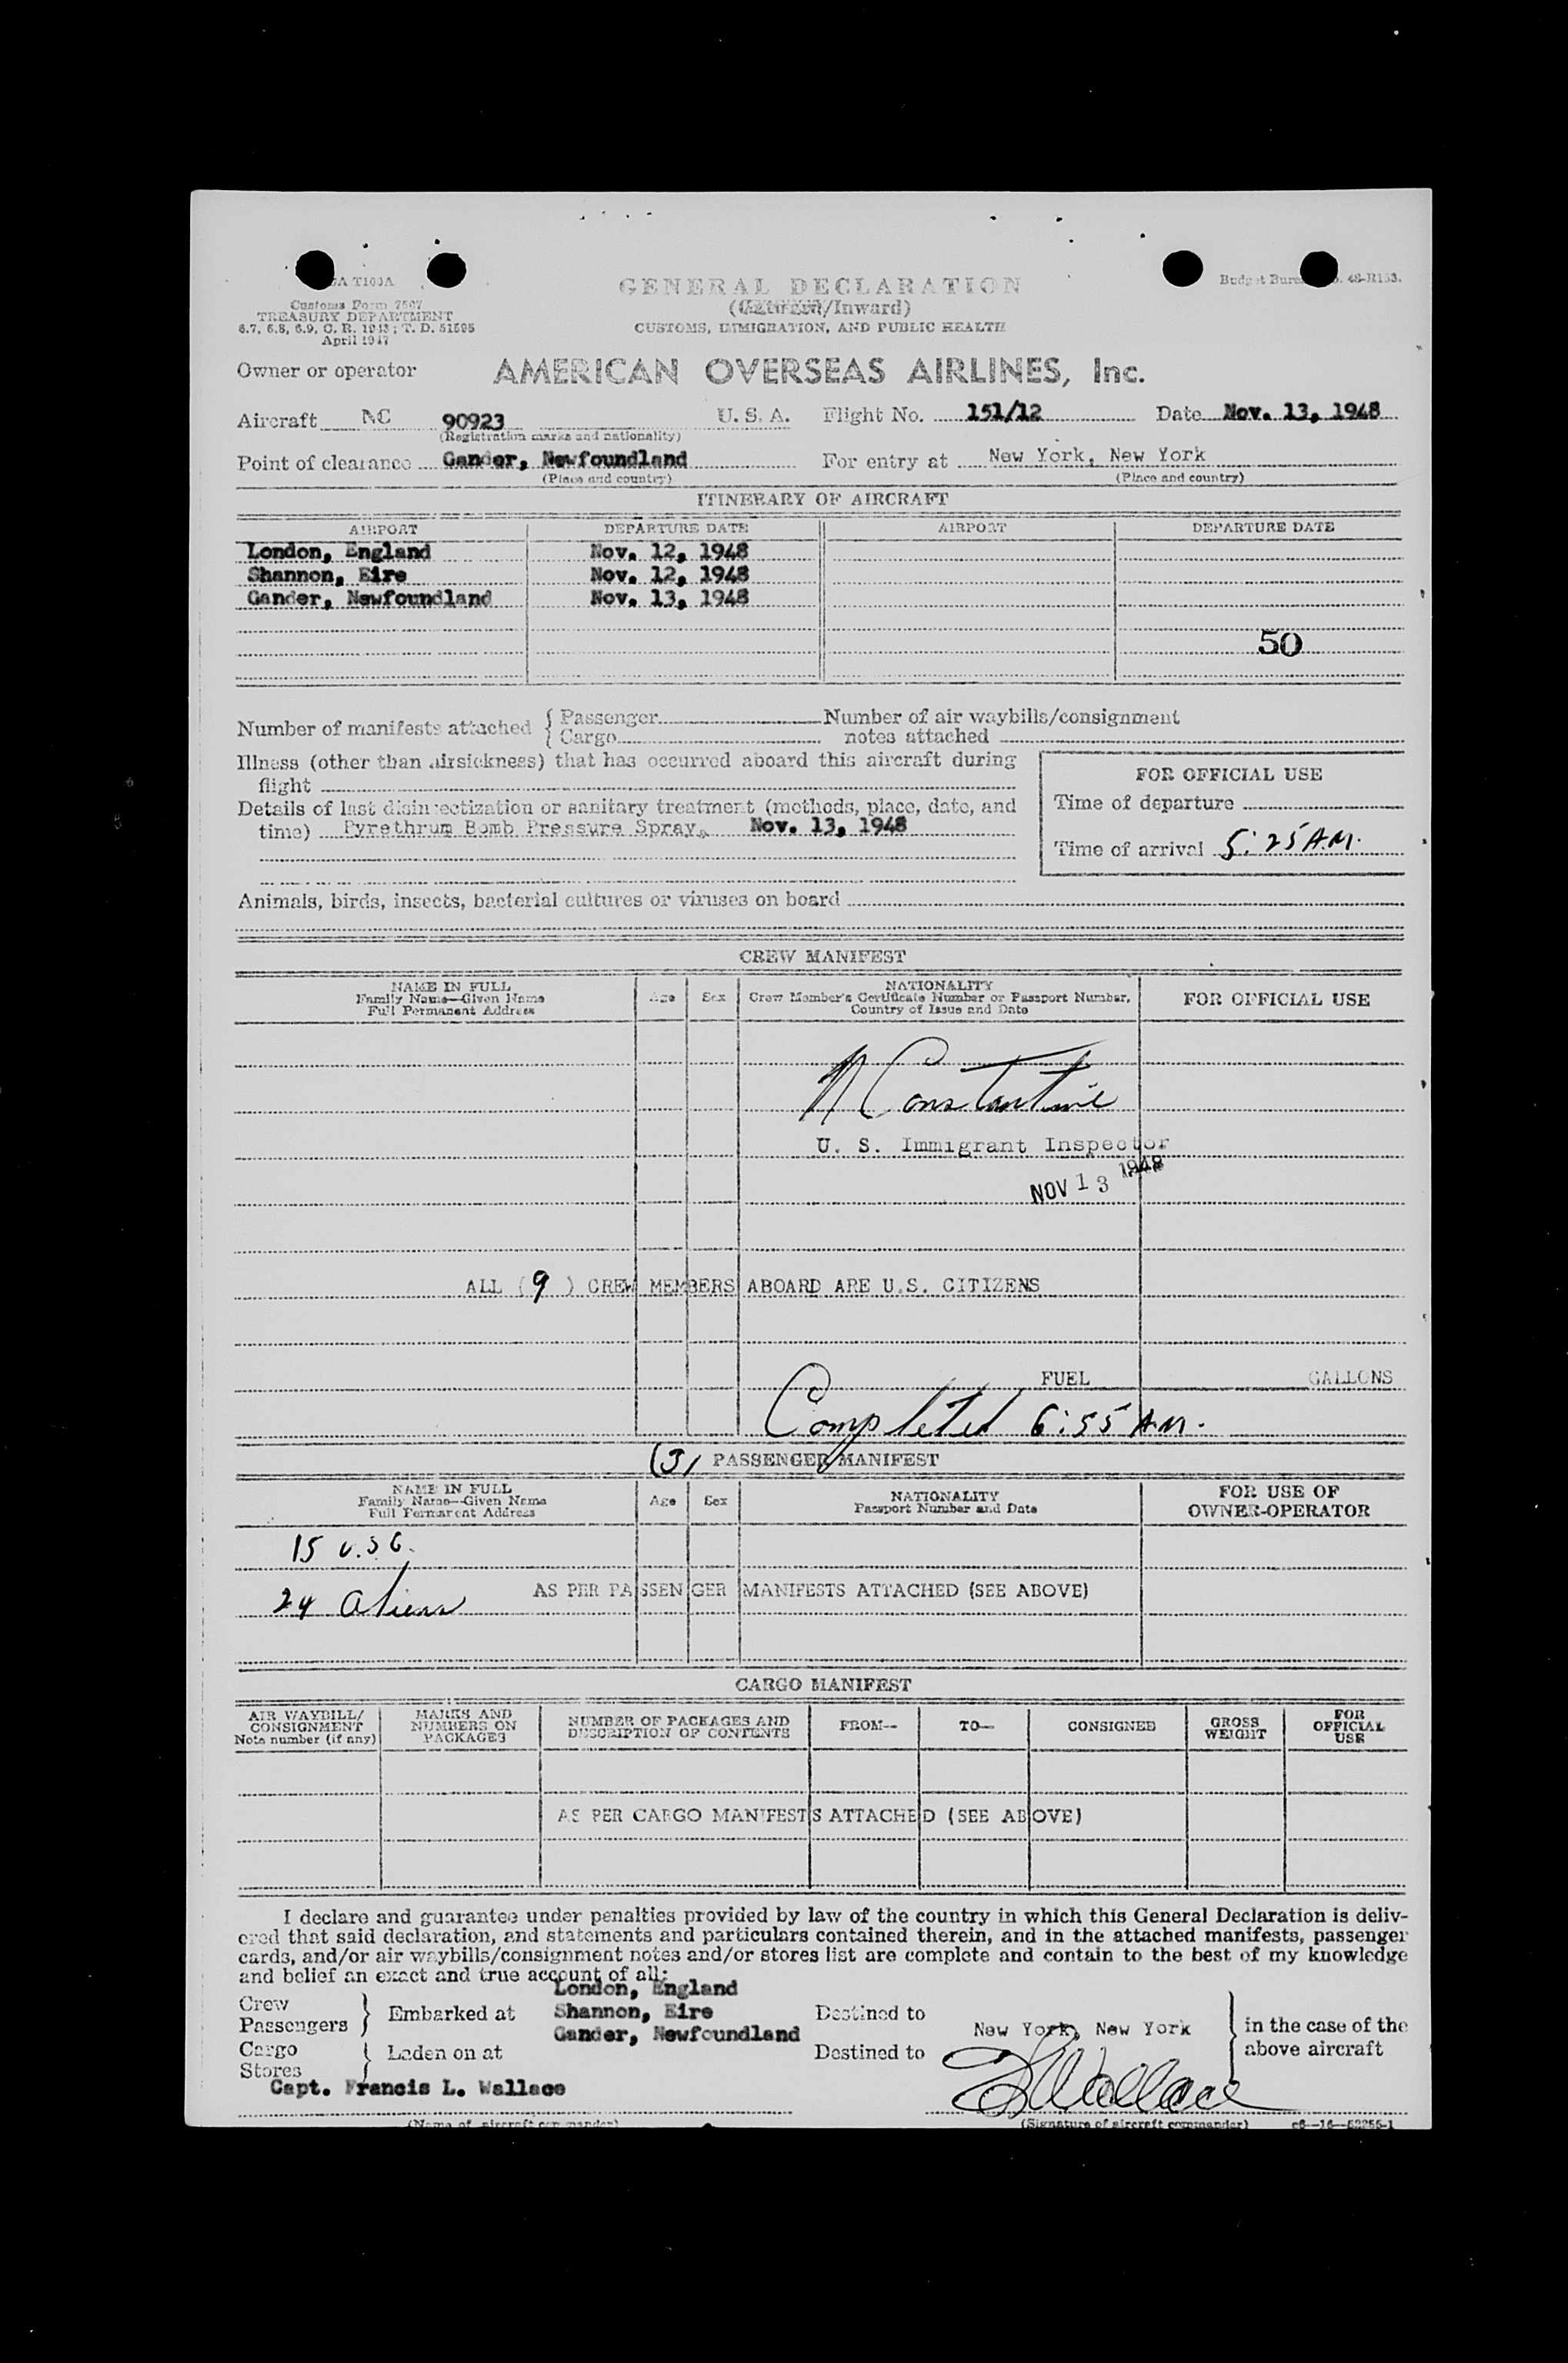 GENERAL DECLARATION
(Outward/Inward)
CUSTOMS, IMMIGRATION, AND PUBLIC HEALTH
Customs Form 7507
TREASURY DEPARTMENT
6.7, 6.8, 6.9, C. R. 1943; T. D. 51595
April 1947
Budget Bureau No. 48-R153.
Owner or operator AMERICAN OVERSEAS AIRLINES, Inc.
Aircraft NC 90923 U. S. A. Flight No. 151/12 Date Nov. 13, 1948
(Registration marks and nationality)
Point of clearance Gander, Newfoundland For entry at New York, New York
(Place and country) (Place and country)
ITINERARY OF AIRCRAFT
AIRPORT DEPARTURE DATE AIRPORT DEPARTURE DATE
London, England Nov. 12, 1948
Shannon, Eire Nov. 12, 1948
Gander, Newfoundland Nov. 13, 1948
50
Number of manifests attached { Passenger Number of air waybills/consignment
Cargo notes attached
Illness (other than airsickness) that has occurred aboard this aircraft during
flight
Details of last disinsectization or sanitary treatment (methods, place, date, and
time) Pyrethrum Bomb Pressure Spray, Nov. 13, 1948
FOR OFFICIAL USE
Time of departure
Time of arrival 5:25 A.M.
Animals, birds, insects, bacterial cultures or viruses on board
CREW MANIFEST
NAME IN FULL
Family Name—Given Name
Full Permanent Address
Age Sex
NATIONALITY
Crew Member's Certificate Number or Passport Number,
Country of Issue and Date
FOR OFFICIAL USE
N Constantine
U. S. Immigrant Inspector
NOV 13 1948
ALL (9) CREW MEMBERS ABOARD ARE U.S. CITIZENS
FUEL GALLONS
Completed 6:55 A.M.
(3) PASSENGER MANIFEST
NAME IN FULL
Family Name—Given Name
Full Permanent Address
Age Sex
NATIONALITY
Passport Number and Date
FOR USE OF
OWNER-OPERATOR
15 U.S.C.
24 Aliens AS PER PASSENGER MANIFESTS ATTACHED (SEE ABOVE)
CARGO MANIFEST
AIR WAYBILL/
CONSIGNMENT
Note number (if any)
MARKS AND
NUMBERS ON
PACKAGES
NUMBER OF PACKAGES AND
DESCRIPTION OF CONTENTS
FROM— TO— CONSIGNEE
GROSS
WEIGHT
FOR
OFFICIAL
USE
AS PER CARGO MANIFESTS ATTACHED (SEE ABOVE)
I declare and guarantee under penalties provided by law of the country in which this General Declaration is deliv-
ered that said declaration, and statements and particulars contained therein, and in the attached manifests, passenger
cards, and/or air waybills/consignment notes and/or stores list are complete and contain to the best of my knowledge
and belief an exact and true account of all:
London, England
Crew
Passengers } Embarked at Shannon, Eire Destined to
Gander, Newfoundland New York, New York } in the case of the
Cargo
Stores } Laden on at Destined to above aircraft
Capt. Francis L. Wallace FLWallace
(Name of aircraft commander) (Signature of aircraft commander) c6—16—52255-1